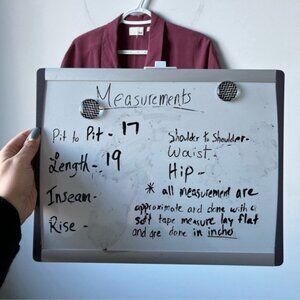 Measurements
Pit to Pit - 17
Length - 19
Inseam -
Rise -
Shoulder to Shoulder -
Waist -
Hip -
* all measurement are
approximate and done with a
soft tape measure lay flat
and are done in inche